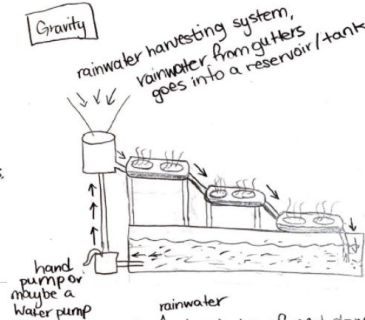 Gravity
rainwater harvesting system,
rainwater from gutters
goes into a reservoir/tank
hand
pump or
maybe a
water pump
rainwater